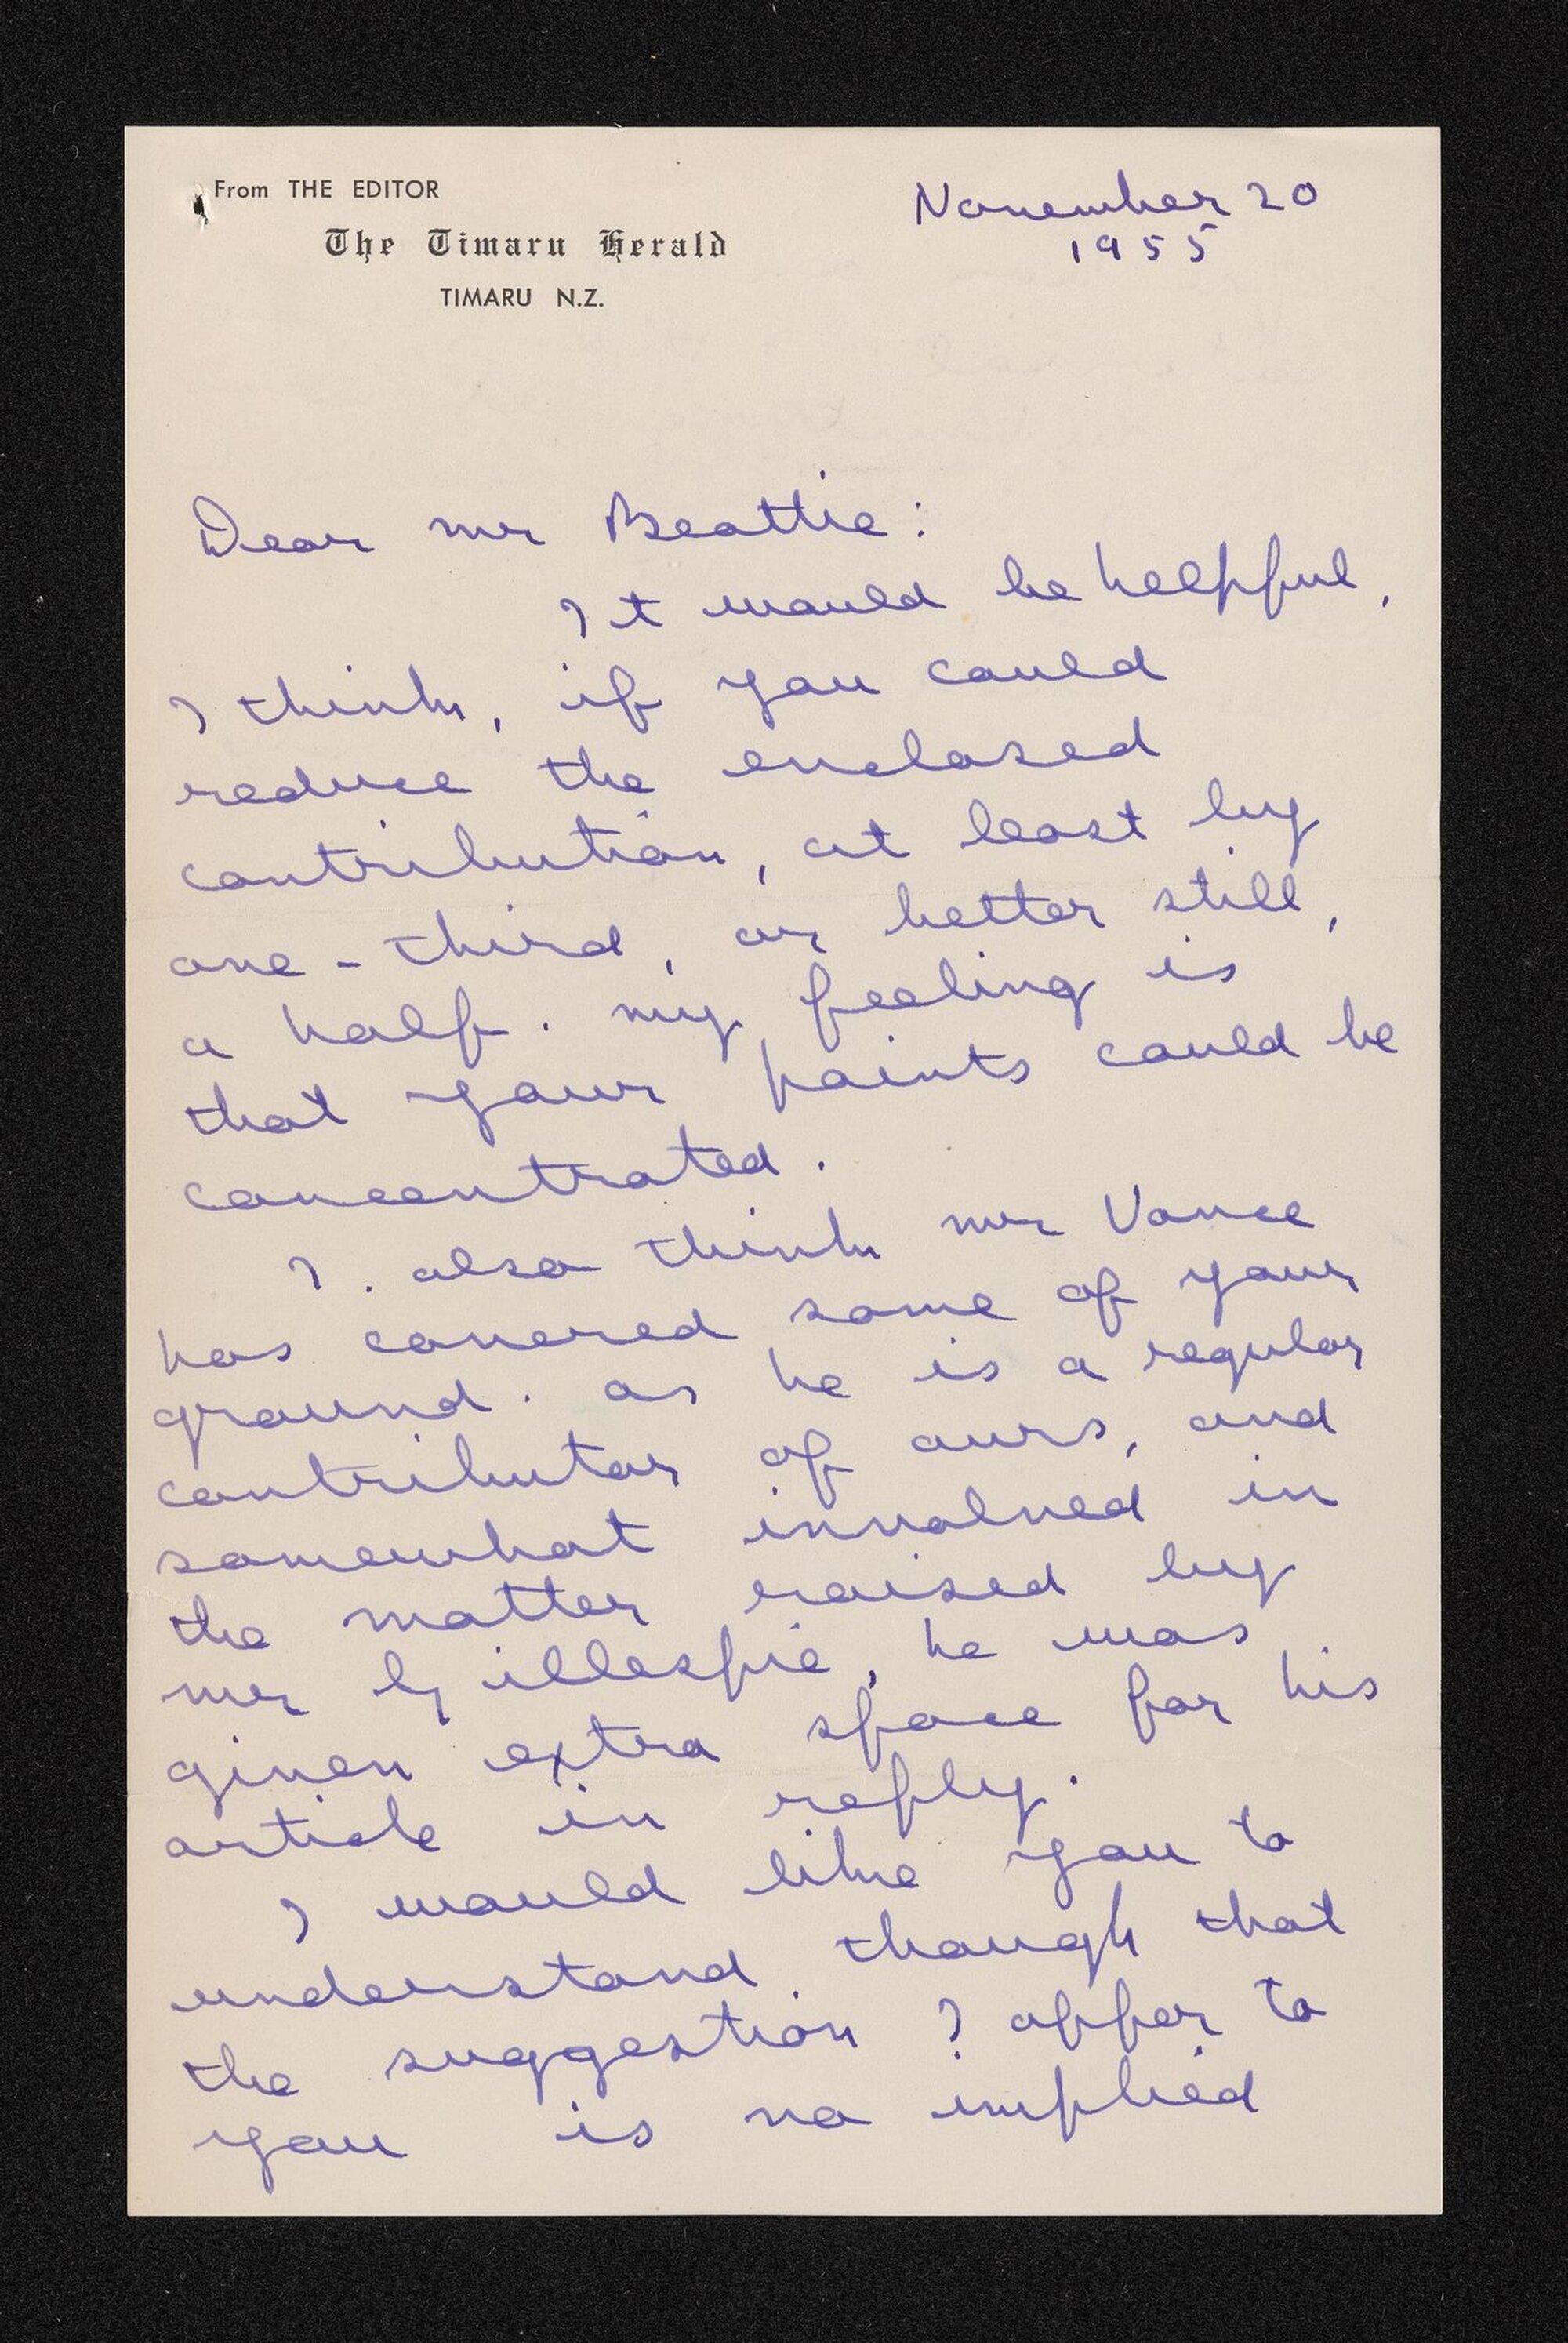 From THE EDITOR
The Timaru Herald
TIMARU N.Z.
November 20
1955
Dear Mr Beattie:
It would be helpful,
I think, if you could
reduce the enclosed
contribution, at least by
one-third, or better still,
a half. My feeling is
that your points could be
concentrated.
I also think Mr Vance
has covered some of your
ground. As he is a regular
contributor of ours, and
somewhat involved in
the matter raised by
Mr Gillespie, he was
given extra space for his
article in reply.
I would like you to
understand though that
the suggestion I offer to
you is no implied